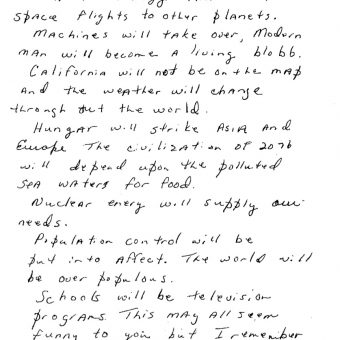 space flights to other planets.
Machines will take over, Modern
man will become a living blobb.
California will not be on the map
and the weather will change
through out the world.
Hungar will strike Asia and
Europe The civilization of 2076
will depend upon the polluted
sea waters for food.
Nuclear enery will supply our
needs.
Population control will be
put into affect. The world will
be over populous.
Schools will be television
programs. This may all seem
funny to you but I remember